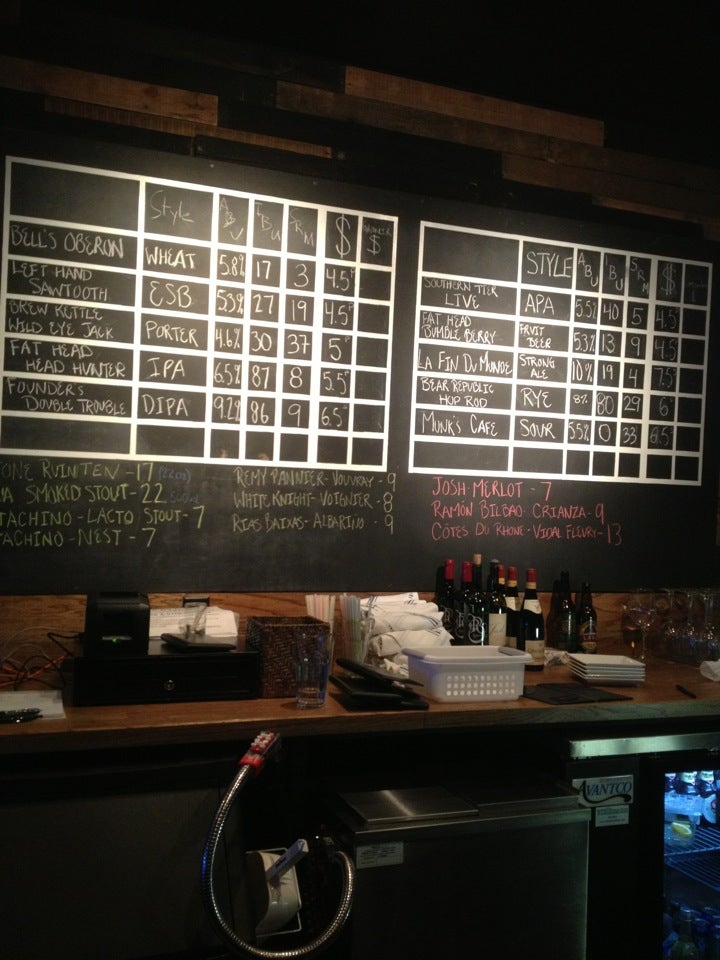 Style ABV IBU SRM $ $
BELL'S OBERON WHEAT 5.8% 17 3 4.5
LEFT HAND
SAWTOOTH ESB 5.3% 27 19 4.5
BREW KETTLE
WILD EYE JACK PORTER 4.6% 30 37 5
FAT HEAD
HEAD HUNTER IPA 6.5% 87 8 5.5
FOUNDER'S
DOUBLE TROUBLE DIPA 9.2% 86 9 6.5
STYLE ABV IBU SRM $
SOUTHERN TIER
LIVE APA 5.5% 40 5 4.5
FAT HEAD
BUMBLE BERRY FRUIT BEER 5.3% 13 9 4.5
LA FIN DU MONDE STRONG ALE 10% 19 4 7.5
BEAR REPUBLIC
HOP ROD RYE 8% 80 29 6
MUNK'S CAFE SOUR 5.5% 0 33 6.5
ONE RUINITEN - 17
SMOKED STOUT - 22
TACHINO - LACTO STOUT - 7
TACHINO - NEST - 7
REMY PANNIER - VOUVRAY - 9
WHITE KNIGHT - VOIGNIER - 8
RIAS BAIXAS - ALBARINO - 9
JOSH - MERLOT - 7
RAMÓN BILBAO - CRIANZA - 9
CÔTES DU RHONE - VIDAL FLEURY - 13
AVANTCO